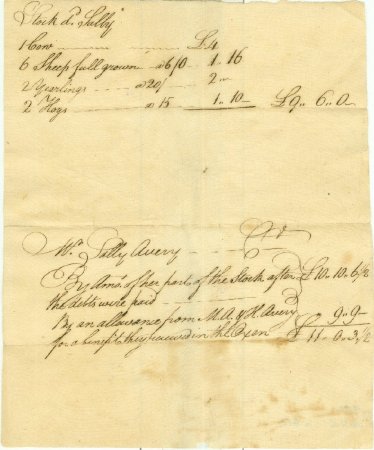 Stock d.. Sally
1 Cow £4
6 Sheep full grown a 6/0 1.. 16
2 Yearlings a 20/ 2..
2 Hogs a 15 1.. 10 £9.. 6.. 0
Sally Avery Cr
By Amo. of her part of the Stock after £10.. 10.. 6 1/2
the debts were paid
By an allowance from M. A. & H. Avery 9.. 9
for a benefit they received in the Oxen £ 11.. 0.. 3 1/2